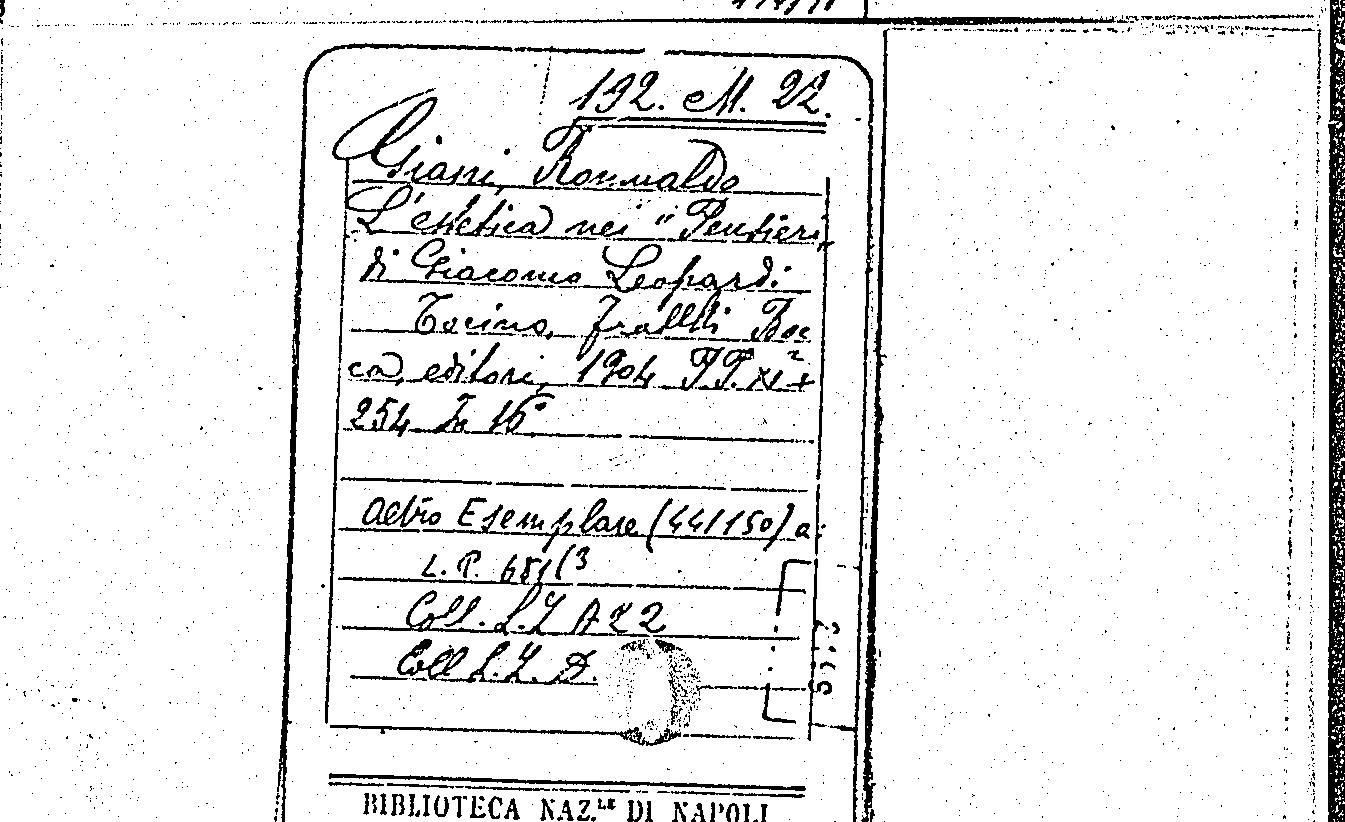 192. M. 22.
Giani, Romualdo
L'estetica nei "Pensieri"
di Giacomo Leopardi
Torino, Fratelli Boc
ca, editori, 1904 PP. XI +
254 In 16°
Altro Esemplare (441150) a:
L. P. 681(3
Coll. L.L A 22
Coll L.L. A.
BIBLIOTECA NAZ.LE DI NAPOLI